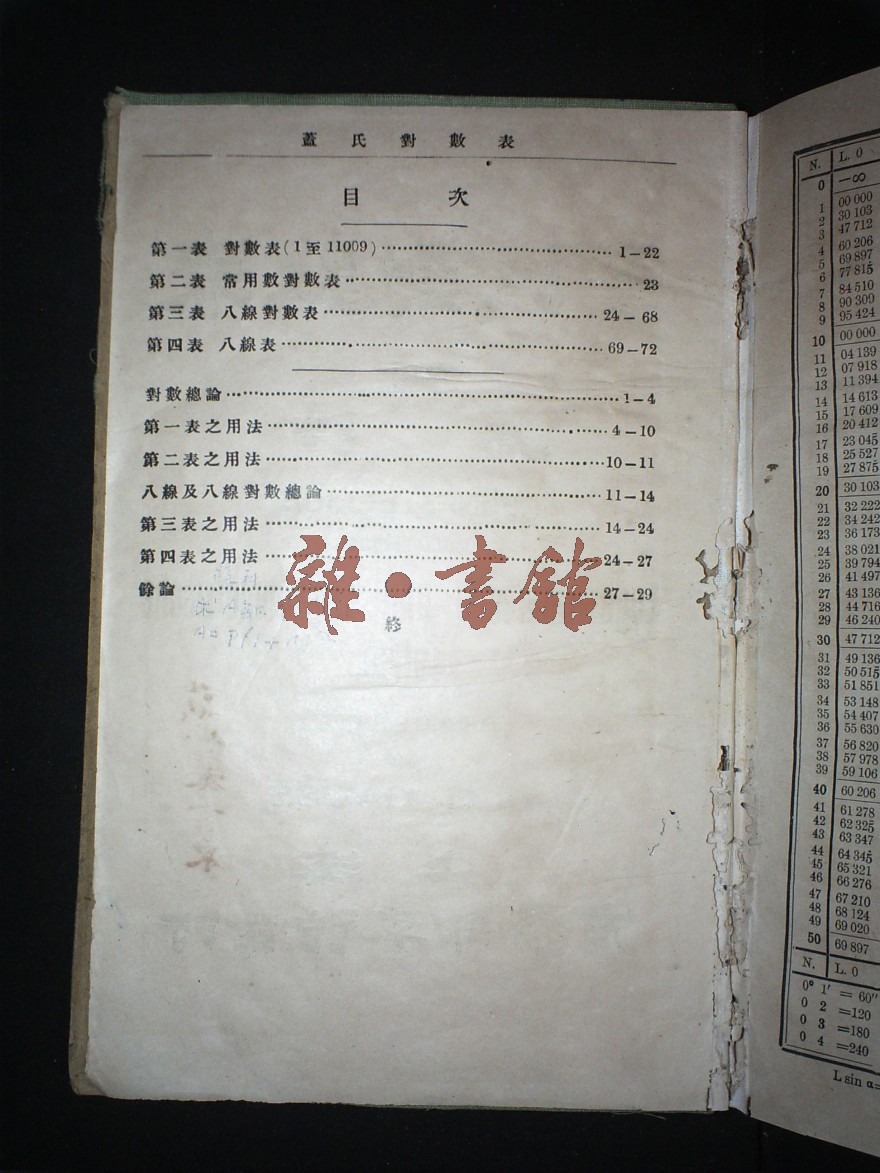 蓋氏對數表
目次
第一表 對數表(1至11009)……1–22
第二表 常用數對數表……23
第三表 八線對數表……24–68
第四表 八線表……69–72
對數總論……1–4
第一表之用法……4–10
第二表之用法……10–11
八線及八線對數總論……11–14
第三表之用法……14–24
第四表之用法……24–27
餘論……27–29
終
雜·書館
N. L. 0
0 –∞
1 00 000
2 30 103
3 47 712
4 60 206
5 69 897
6 77 815
7 84 510
8 90 309
9 95 424
10 00 000
11 04 139
12 07 918
13 11 394
14 14 613
15 17 609
16 20 412
17 23 045
18 25 527
19 27 875
20 30 103
21 32 222
22 34 242
23 36 173
24 38 021
25 39 794
26 41 497
27 43 136
28 44 716
29 46 240
30 47 712
31 49 136
32 50 515
33 51 851
34 53 148
35 54 407
36 55 630
37 56 820
38 57 978
39 59 106
40 60 206
41 61 278
42 62 325
43 63 347
44 64 345
45 65 321
46 66 276
47 67 210
48 68 124
49 69 020
50 69 897
N. L. 0
0° 1′ = 60″
0 2 =120
0 3 =180
0 4 =240
L sin α=